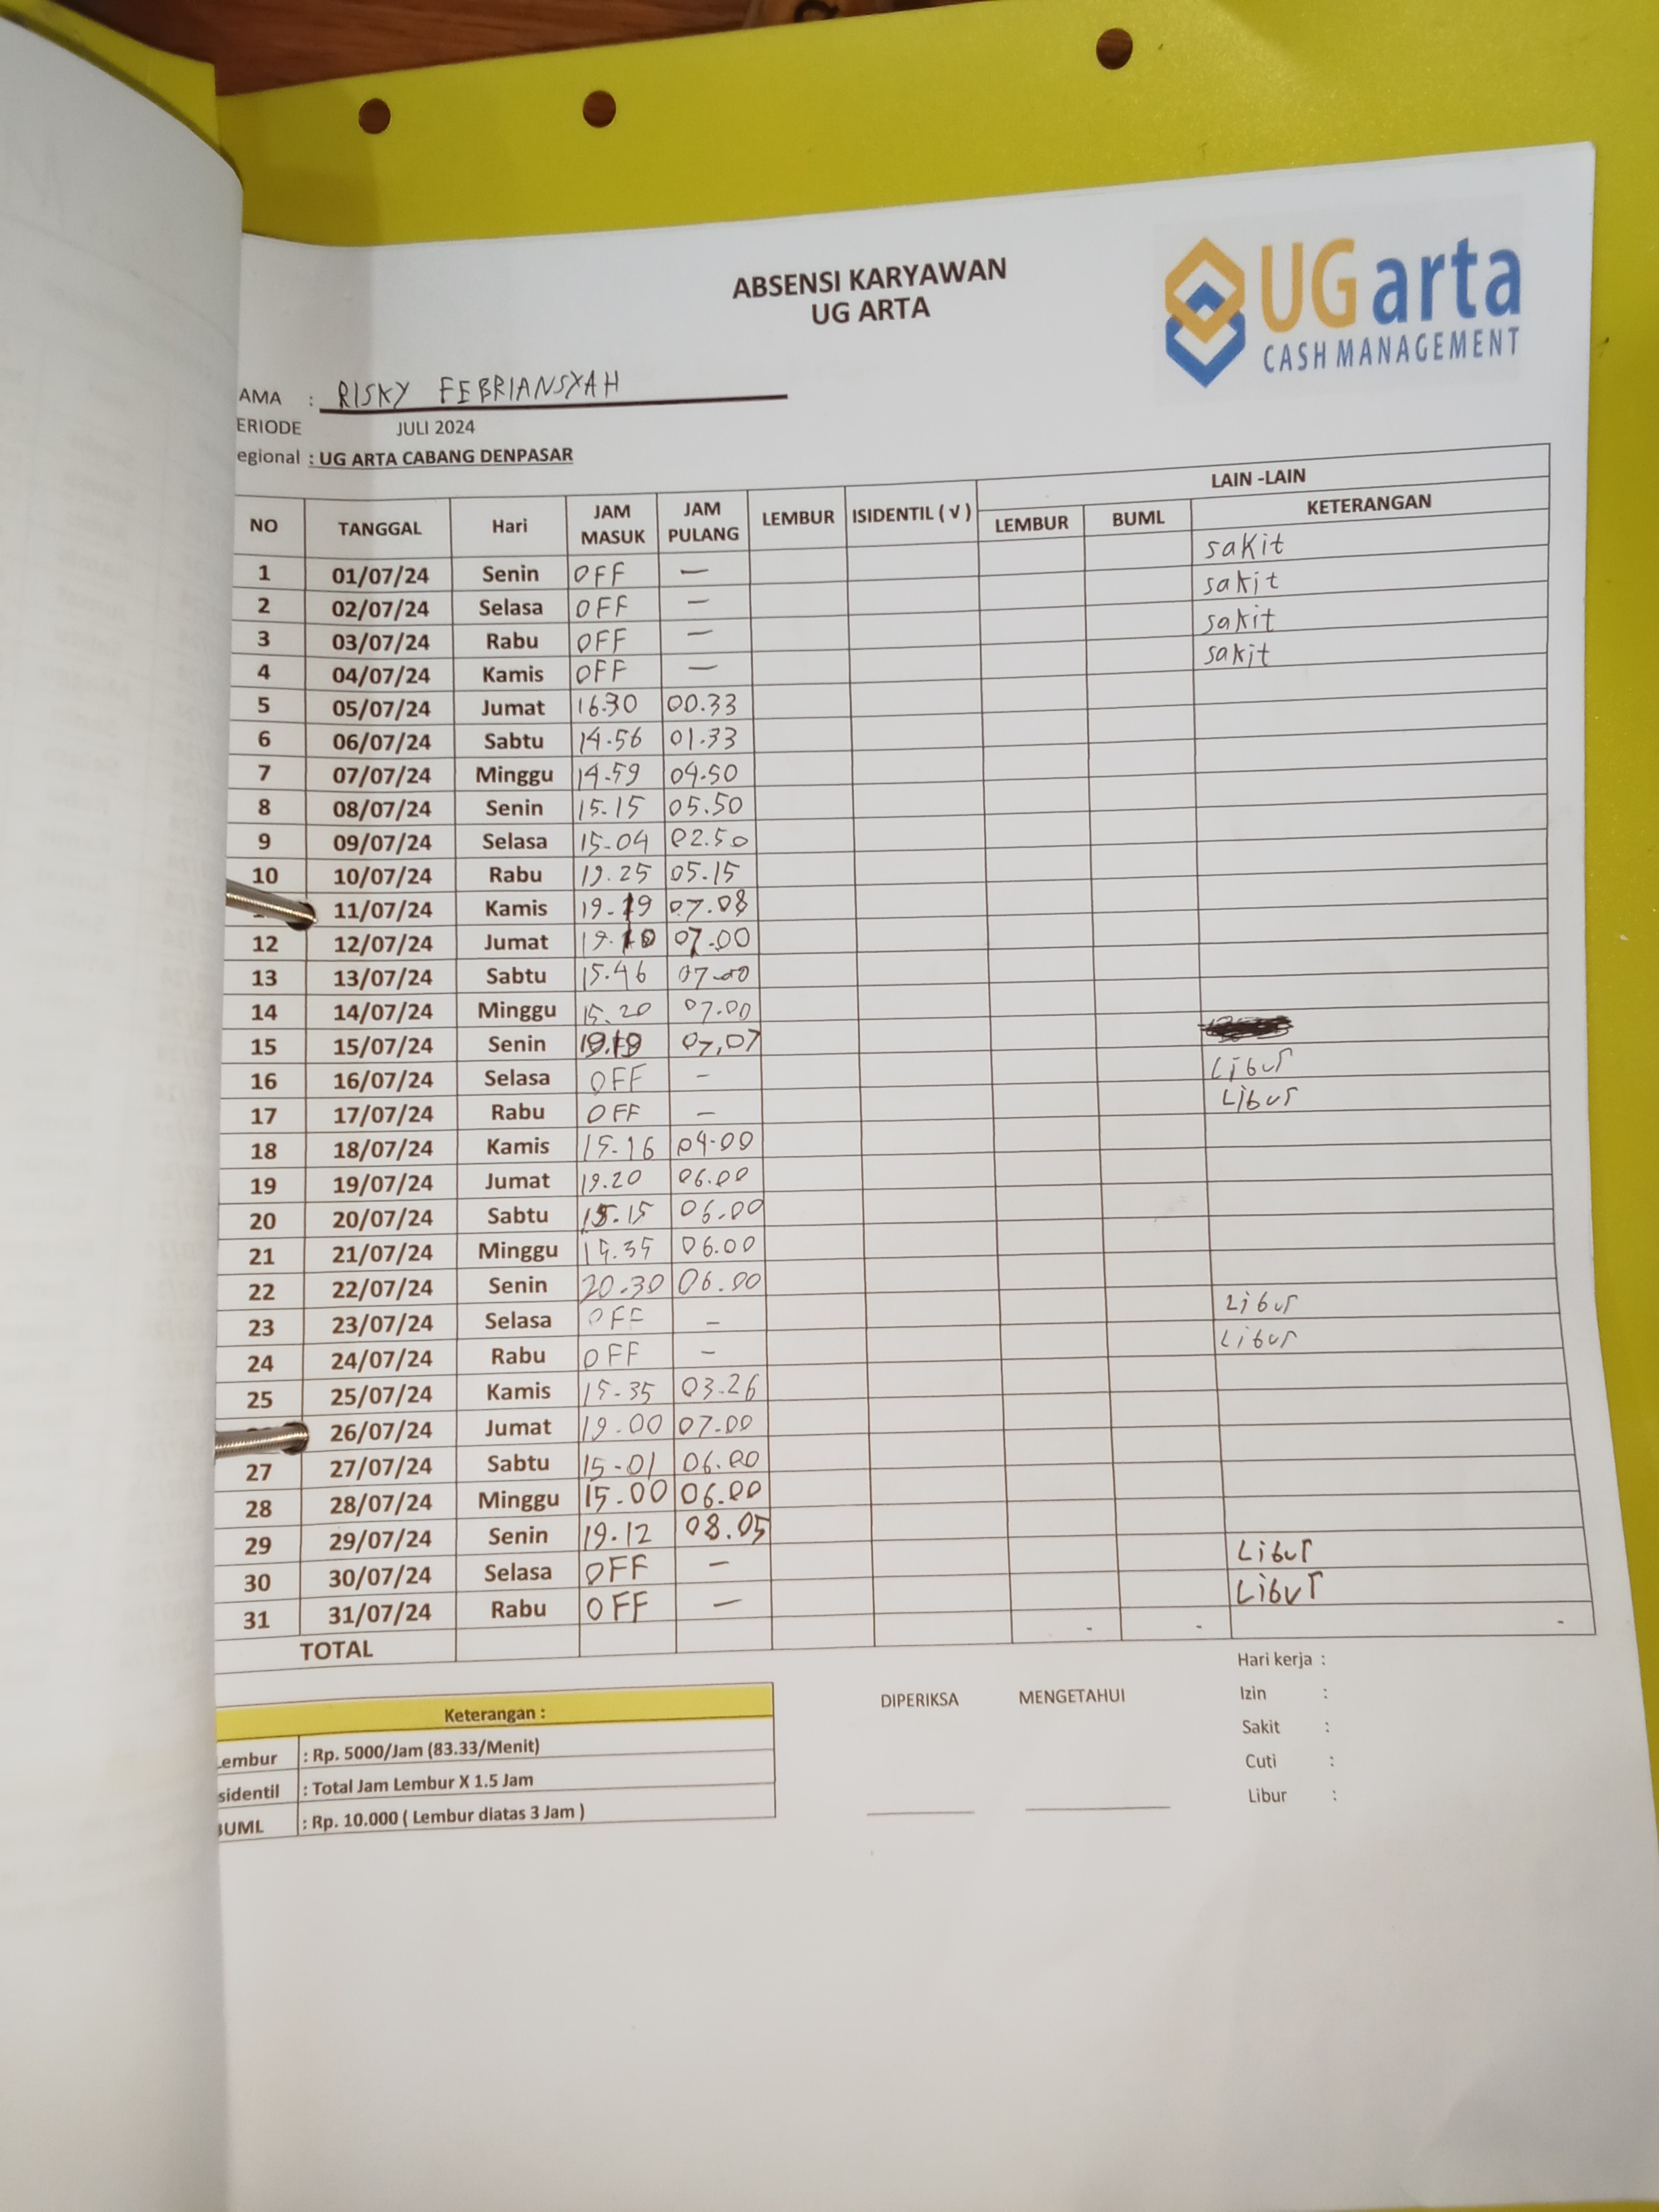 ABSENSI KARYAWAN
UG ARTA
UGarta
CASH MANAGEMENT
AMA : RISKY FEBRIANSYAH
ERIODE JULI 2024
egional : UG ARTA CABANG DENPASAR
NO TANGGAL Hari JAM MASUK JAM PULANG LEMBUR ISIDENTIL ( √ ) LAIN -LAIN
LEMBUR BUML KETERANGAN
1 01/07/24 Senin OFF — sakit
2 02/07/24 Selasa OFF — sakit
3 03/07/24 Rabu OFF — sakit
4 04/07/24 Kamis OFF — sakit
5 05/07/24 Jumat 16.30 00.33
6 06/07/24 Sabtu 14.56 01.33
7 07/07/24 Minggu 14.59 04.50
8 08/07/24 Senin 15.15 05.50
9 09/07/24 Selasa 15.04 02.50
10 10/07/24 Rabu 19.25 05.15
11/07/24 Kamis 19.19 07.08
12 12/07/24 Jumat 07.00
13 13/07/24 Sabtu 15.46 07.00
14 14/07/24 Minggu 15.20 07.00
15 15/07/24 Senin 07,07
16 16/07/24 Selasa OFF - Libur
17 17/07/24 Rabu OFF - Libur
18 18/07/24 Kamis 15.16 04.00
19 19/07/24 Jumat 19.20 06.00
20 20/07/24 Sabtu 15.15 06.00
21 21/07/24 Minggu 15.35 06.00
22 22/07/24 Senin 20.30 06.00
23 23/07/24 Selasa OFF - Libur
24 24/07/24 Rabu OFF - Libur
25 25/07/24 Kamis 15.35 03.26
26/07/24 Jumat 19.00 07.00
27 27/07/24 Sabtu 15.01 06.00
28 28/07/24 Minggu 15.00 06.00
29 29/07/24 Senin 19.12 08.05
30 30/07/24 Selasa OFF — Libur
31 31/07/24 Rabu OFF — Libur
TOTAL - - -
Keterangan :
Lembur : Rp. 5000/Jam (83.33/Menit)
sidentil : Total Jam Lembur X 1.5 Jam
BUML : Rp. 10.000 ( Lembur diatas 3 Jam )
DIPERIKSA MENGETAHUI
Hari kerja :
Izin :
Sakit :
Cuti :
Libur :